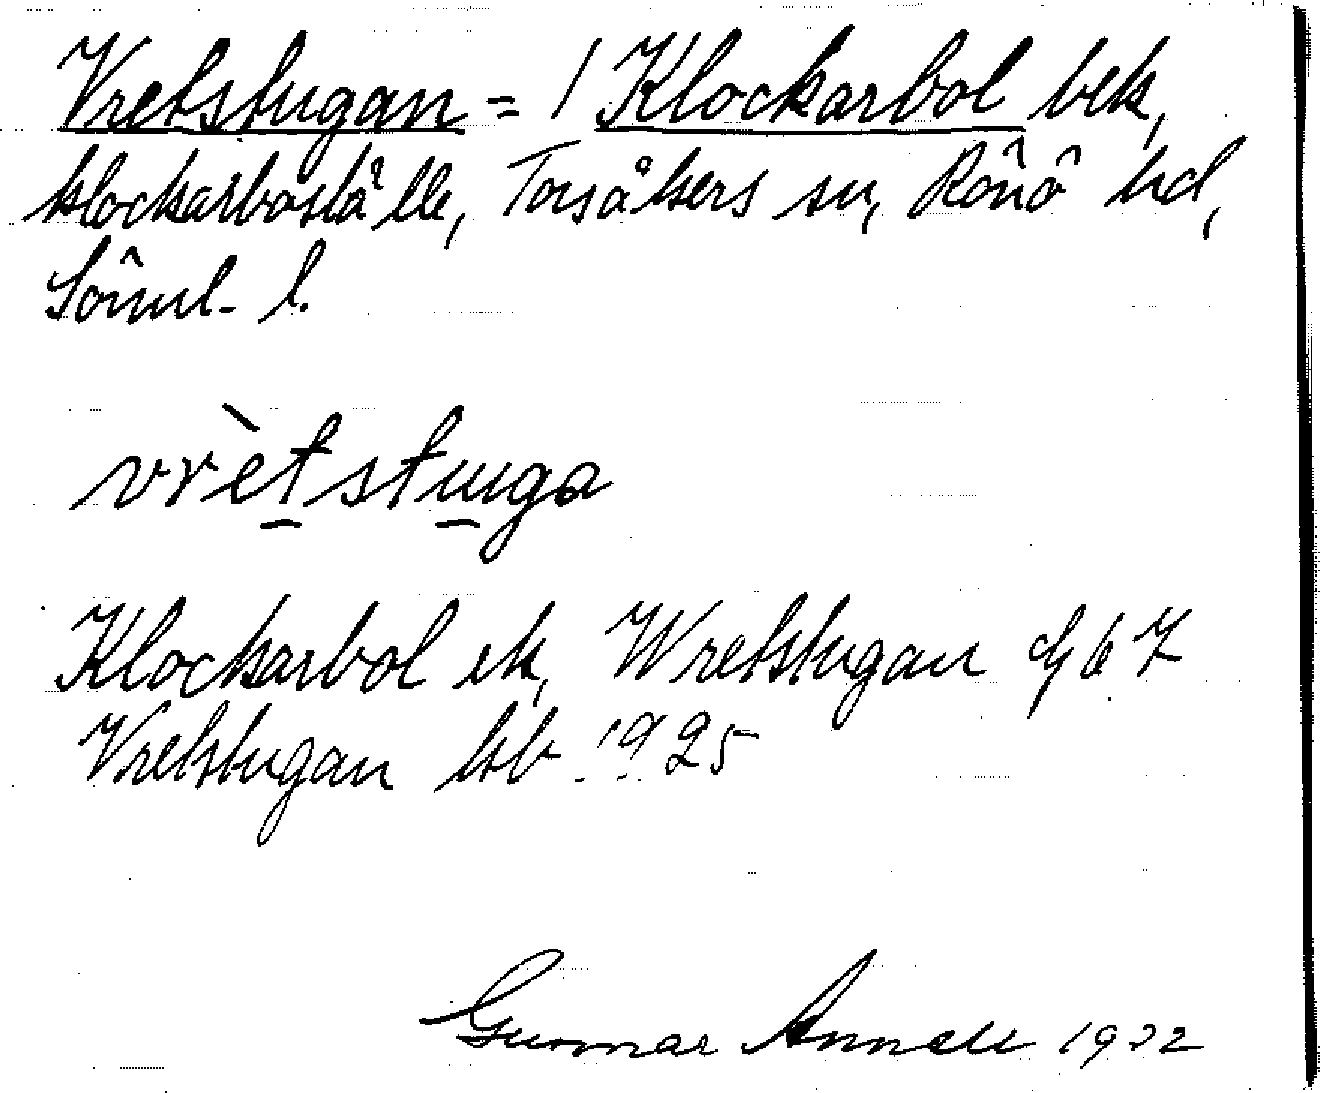 Vretstugan = 1 Klockarbol bek,
klockarboställe, Torsåkers sn, Rönö hd,
Söml. l.
vrètstuga
Klockarbol ek, Wretstugan
Vretstugan kb 1925
Gunnar Annell 1932